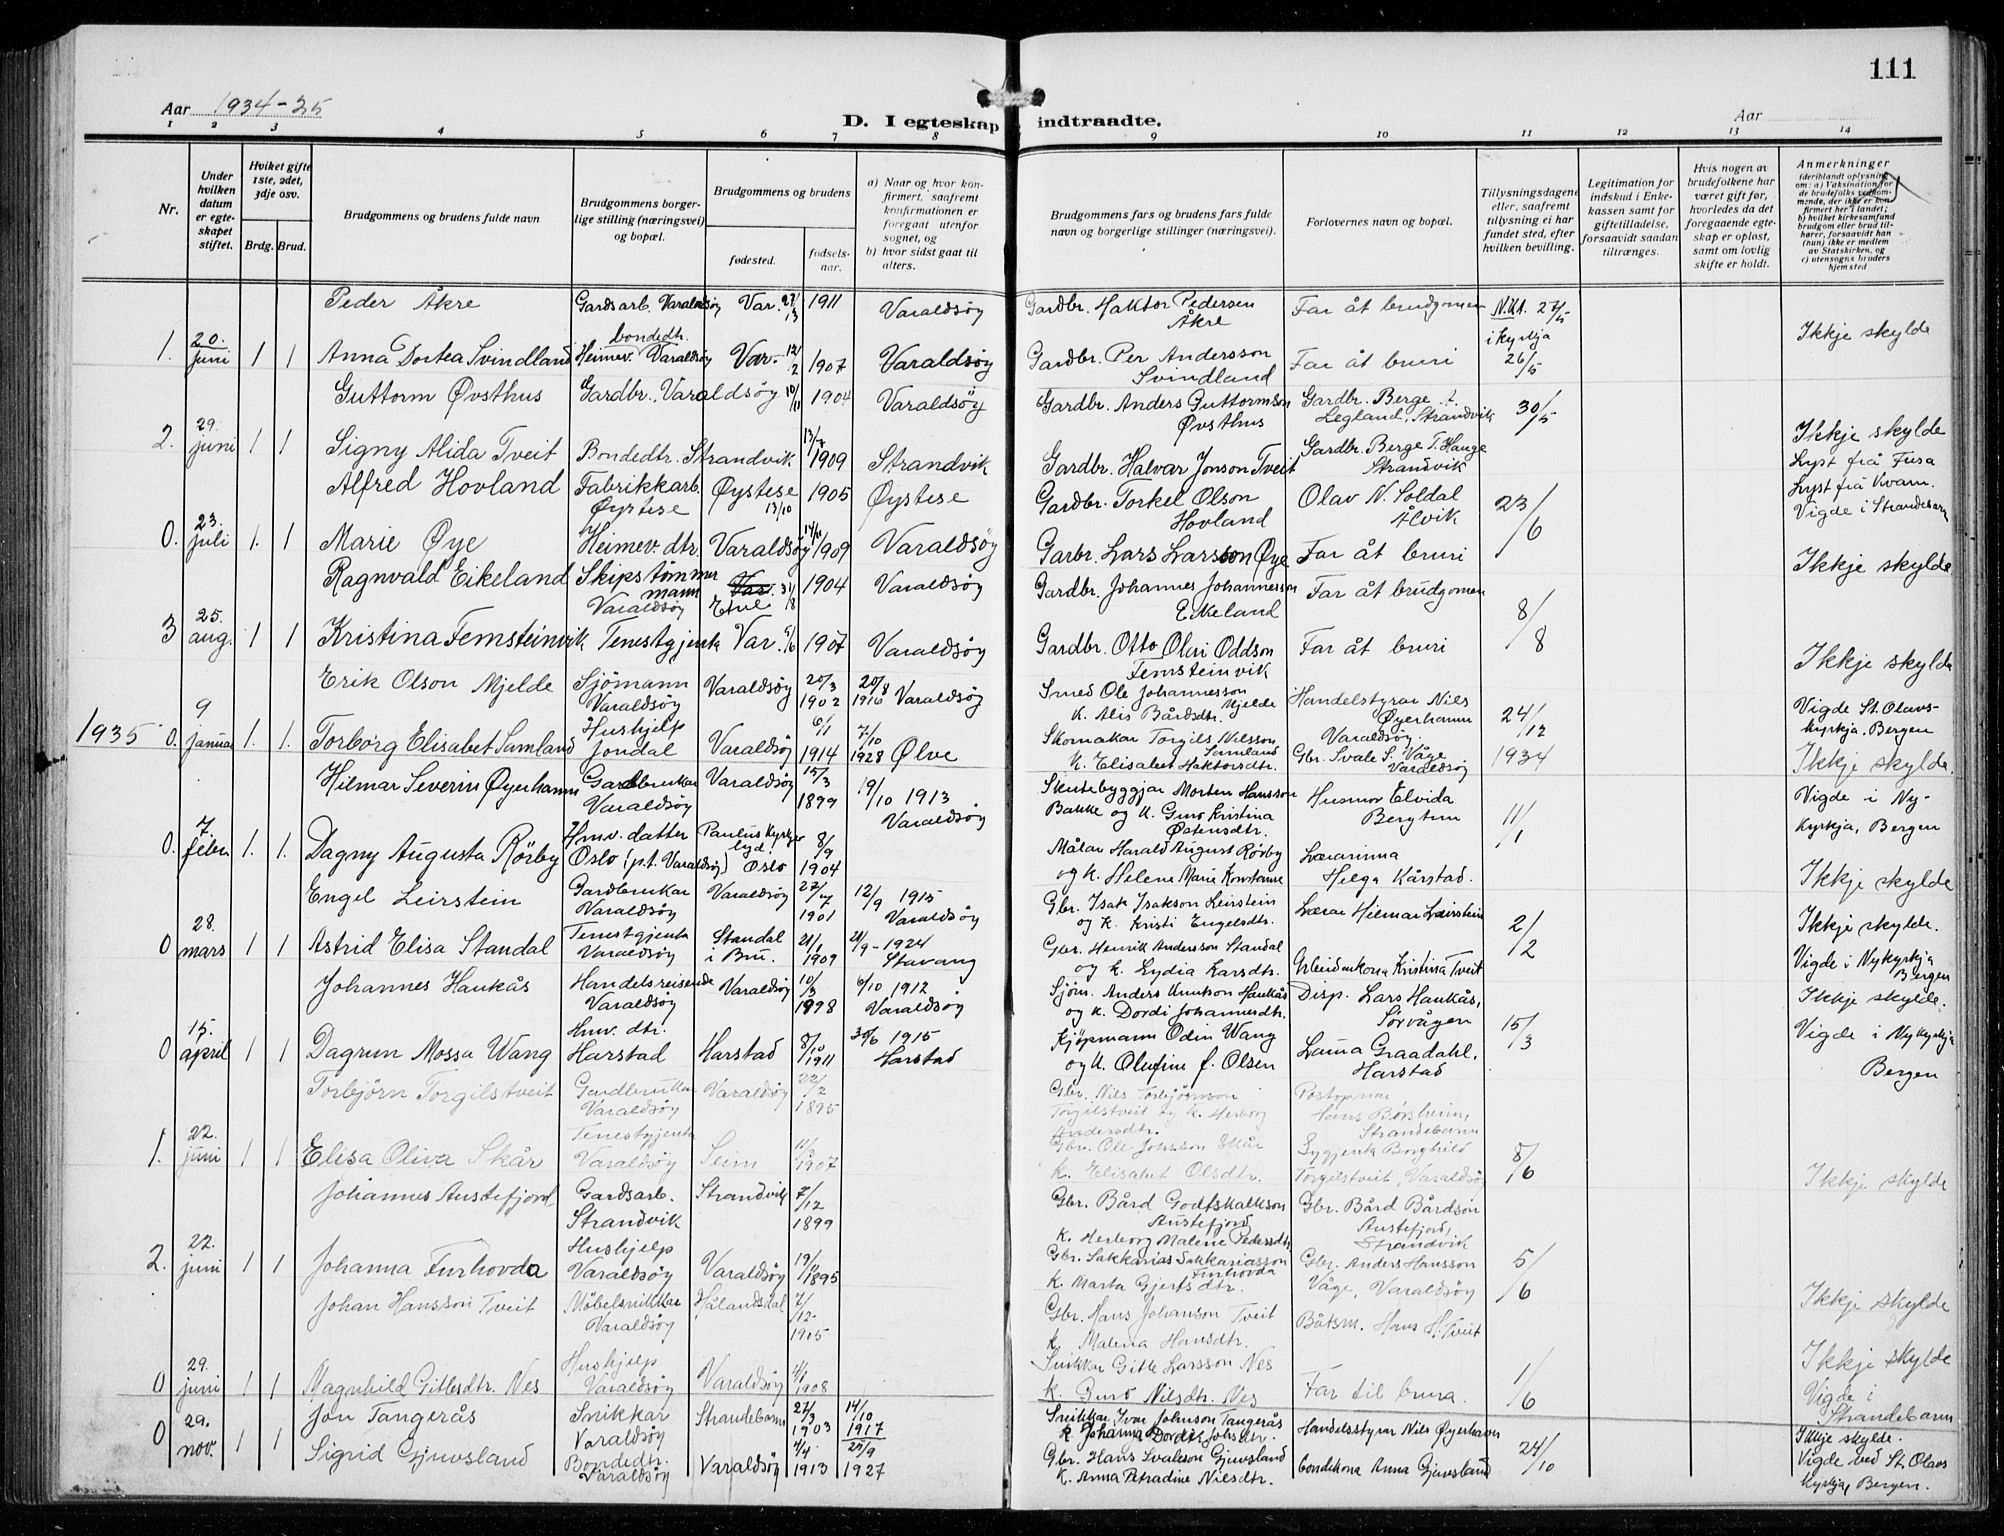 111
Aar 1934-35
D. I egteskap indtraadte.
Aar
1 2 3 4 5 6 7 8 9 10 11 12 13 14
Nr.
Under hvilken datum er egteskapet stiftet.
Hviket gifte 1ste, 2det, 3dje osv.
Brdg. Brud.
Brudgommens og brudens fulde navn
Brudgommens borgerlige stilling (næringsvei) og bopæl.
Brudgommens og brudens
fødested.
fødselsaar.
a) Naar og hvor konfirmert, saafremt konfirmationen er foregaat utenfor sognet, og
b) hvor sidst gaat til alters.
Brudgommens fars og brudens fars fulde navn og borgerlige stillinger (næringsvei).
Forlovernes navn og bopæl.
Tillysningsdagene eller, saafremt tillysning ei har fundet sted, efter hvilken bevilling.
Legitimation for indskud i Enkekassen samt for giftetilladelse, forsaavidt saadan tiltrænges.
Hvis nogen av brudefolkene har været gift før, hvorledes da det foregaaende egteskap er opløst, samt om lovlig skifte er holdt.
Anmerkninger
(deriblandt oplysning om: a) Vaksination for de brudefolks vedkommende, der ikke er konfirmert her i landet; b) hvilket kirkesamfund brudgom eller brud tilhører, forsaavidt han (hun) ikke er medlem av Statskirken, og c) utensogns bruders hjemsted
Peder Åkre Gardsarb. Varaldsöy Var. 27/13 1911 Varaldsöy Gardbr. Haktor Pedersen Åkre Far åt brudgomen N.K.A. 27/5
1. 20. juni 1 1 Anna Dortea Svindland bondedtr. Heimev. Varaldsöy Var. 12/2 1907 Varaldsöy Gardbr. Per Andersson Svindland Far åt bruri i kyrkja 26/5 Ikkje skylde
Guttorm Øvsthus Gardbr. Varaldsöy 10/11 1904 Varaldsöy Gardbr. Anders Guttormson Øvsthus Gardbr. Berge A. Legland, Strandvik 30/5
2. 29. juni 1 1 Signy Alida Tveit Bondedtr. Strandvik 13/7 1909 Strandvik Gardbr. Halvar Jonson Tveit Gardbr. Berge T. Hauge Strandvik Ikkje skylde Lyst frå Fusa
Alfred Hovland Fabrikkarb. Øystese Øystese 13/10 1905 Øystese Gardbr. Torkel Olson Hovland Olav N. Soldal Ålvik 23/6 Lyst frå Kvam. Vigde i Strandebarm
0. 23. juli 1. 1 Marie Øye Heimev. dtr. Varaldsöy 1909 Varaldsöy Garbr. Lars Larsson Øye Far åt bruri Ikkje skylde
Ragnvald Eikeland Skipstømmermann Varaldsöy Etne 31/8 1904 Varaldsöy Gardbr. Johannes Johannesson Eikeland Far åt brudgomen 8/8
3 25. aug. 1 1 Kristina Femsteinvik Tenestgjenta Var. 5/6 1907 Varaldsöy Gardbr. Otto Olai Oddson Femsteinvik Far åt bruri Ikkje skylde
Erik Olson Mjelde Sjömann Varaldsöy Varaldsöy 20/3 1902 20/8 1916 Varaldsöy Smed Ole Johannesson Mjelde k. Alis Bårdsdtr. Handelstyrar Nils Øyerhamn Varaldsöy. 24/12 1934 Vigde St. Olavskyrkja, Bergen
1935 0. 9 januar 1. 1. Torborg Elisabet Samland Hushjelp Jondal Varaldsöy 6/1 1914 7/10 1928 Ølve Skomakar Torgils Nilsson Samland k. Elisabet Haktorsdtr. Gbr. Svale S. Våge Varaldsöy Ikkje skylde.
Hilmar Severin Øyerhamn Gardbrukar Varaldsöy Varaldsöy 15/3 1899 19/10 1913 Varaldsöy Skutebyggjar Morten Hansson Bakke og k. Guro Kristina Østensdtr. Husmor Elvida Bergtun 11/1 Vigde i Nykyrkja, Bergen
0. 7. febr 1. 1. Dagny Augusta Rörby Hmv. datter Oslo (p.t. Varaldsöy) Paulus kyrkjelyd. Oslo 8/9 1904 Målar Harald August Rörby og k. Helene Marie Konstanse Lærarinna Helga Kårstad. Ikkje skylde
Engel Leirstein Gardbrukar Varaldsöy Varaldsöy 27/7 1901 12/9 1915 Varaldsöy Gbr. Isak Isakson Leirstein og k. Kristi Engelsdtr. Lærar Hilmar Leirstein 2/2 Ikkje skylde.
0 28. mars 1 1 Astrid Elisa Standal Tenestgjenta Varaldsöy Standal i Bru. 21/1 1909 21/9 - 1924 Stavang Gbr. Henrik Andersson Standal og k. Lydia Larsdtr. Arbeidarkona Kristina Tveit Vigde i Nykyrkja Bergen
Johannes Haukås Handelsreisende Varaldsöy Varaldsöy 10/3 1898 6/10 1912 Varaldsöy Sjöm. Anders Knutson Haukås og k. Dordi Johannesdtr. Disp. Lars Haukås, Sörvågen 15/3 Ikkje skylde.
0 15. april 1 1 Dagrun Mossa Wang Hmv. dtr. Harstad Harstad 8/10 1911 30/6 1915 Harstad Kjöpmann Odin Wang og k. Olufine f. Olsen Laura Graadahl, Harstad Vigde i Nykyrkja Bergen
Torbjörn Torgilstveit Gardbrukar Varaldsöy Varaldsöy 22/2 1895 Gbr. Nils Torbjörnson Torgilstveit og k. Herborg Andersdtr. Postopnar Hans Börsheim, Strandebarm
1. 22. juni 1 1 Elisa Oliva Skår Tenestgjenta Varaldsöy Seim 11/3 1907 Gbr. Ole Johnsson Skår k. Elisabet Olsdtr. Sygjenta Borghild Torgilstveit, Varaldsöy 8/6 Ikkje skylde
Johannes Austefjord Gardsarb. Strandvik Strandvik 7/12 1899 Gbr. Bård Godtskalkson Austefjord k. Herborg Malene Pedersdtr. Gbr. Bård Bårdson Austefjord, Strandvik
2. 22. juni 1 1 Johanna Furhovda Hushjelp Varaldsöy Varaldsöy 19/11 1895 Gbr. Sakkarias Sakkariasson Furhovda k. Marta Gjertsdtr. Gbr. Anders Hansson Våge, Varaldsöy 5/6 Ikkje skylde
Johan Hansson Tveit Möbelsnikkar Varaldsöy Hålandsdal 7/12 1905 Gbr. Hans Johanson Tveit k. Malena Hansdtr. Båtsm. Hans H. Tveit
0 29. juni 1 1 Magnhild Gittlesdtr. Nes Hushjelp Varaldsöy Varaldsöy 4/1 1908 Snikkar Gitle Larsson Nes k. Guro Nilsdtr. Nes Far til brura. 1/6 Ikkje skylde Vigde i Strandebarm
Jon Tangerås Snikkar Varaldsöy Strandebarm 27/3 1903 14/10 1917 Snikkar Ivar Johnson Tangerås k. Johanna Dordei Johsdtr. Handelsstyrar Nils Øyerhavn 24/10 Ikkje skylde.
0 29. nov. 1 1 Sigrid Gjuvsland Bondedtr. Varaldsöy Varaldsöy 4/4. 1913 25/9 1927 Gbr. Hans Svaleson Gjuvsland k. Anna Petradine Nilsdtr. bondekona Anna Gjuvsland Vigde ved St. Olavs kyrkja, Bergen.